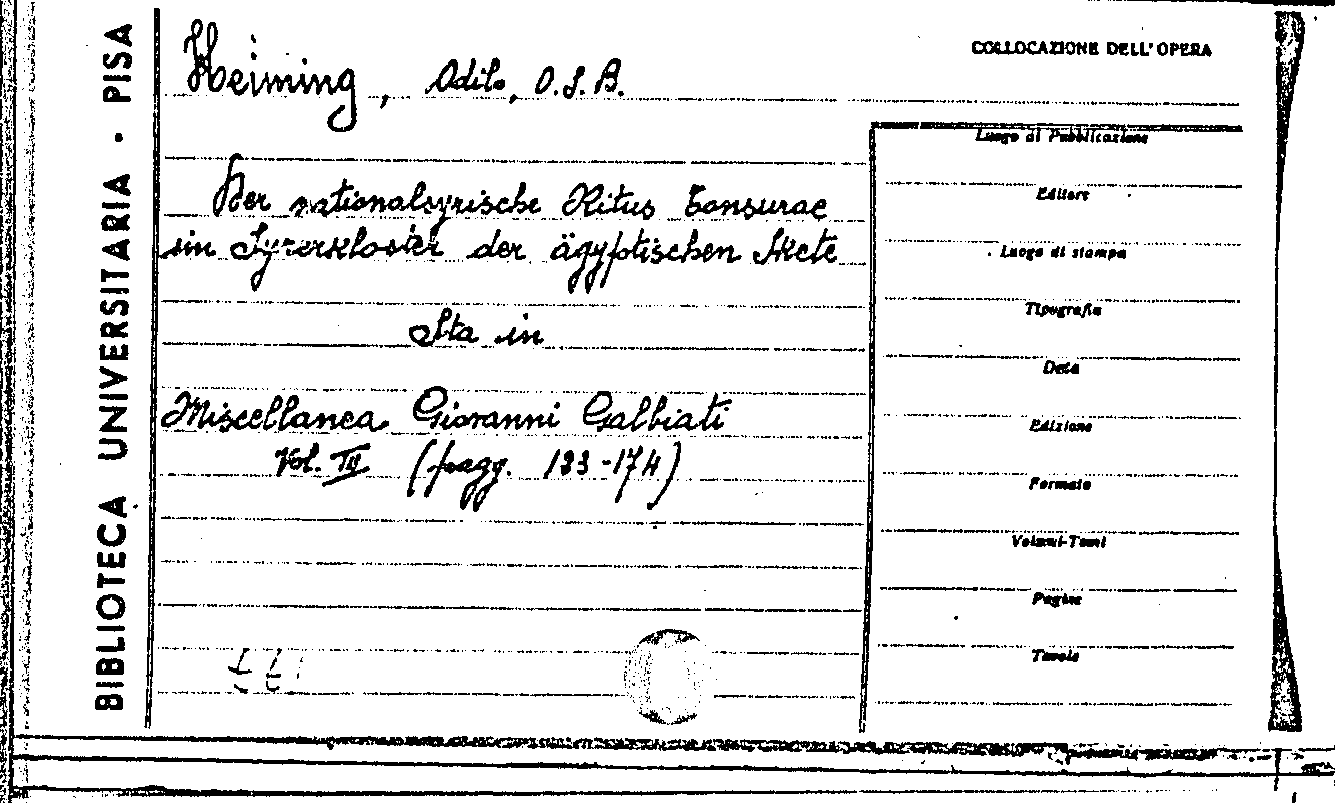 BIBLIOTECA UNIVERSITARIA · PISA
Heiming, Odilo, O.S.B.
Der nationalsyrische Ritus Tonsurae
im Syrerkloster der ägyptischen Skete
Sta in
Miscellanea Giovanni Galbiati
Vol. III (pagg. 123-174)
COLLOCAZIONE DELL'OPERA
Luogo di Pubblicazione
Editore
Luogo di stampa
Tipografia
Data
Edizione
Formato
Volumi-Tomi
Pagine
Tavole